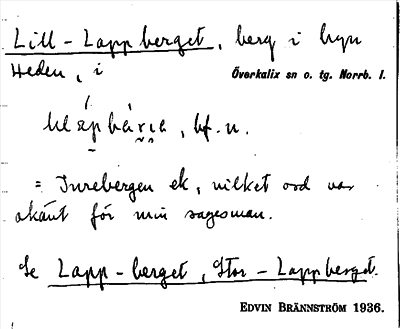 Lill-Lappberget, berg i byn
Heden, i Överkalix sn o. tg. Norrb. l.
bf. n.
= Inrebergen ek, vilket ord var
okänt för min sagesman.
Se Lapp-berget, Stor-Lappberget.
EDVIN BRÄNNSTRÖM 1936.